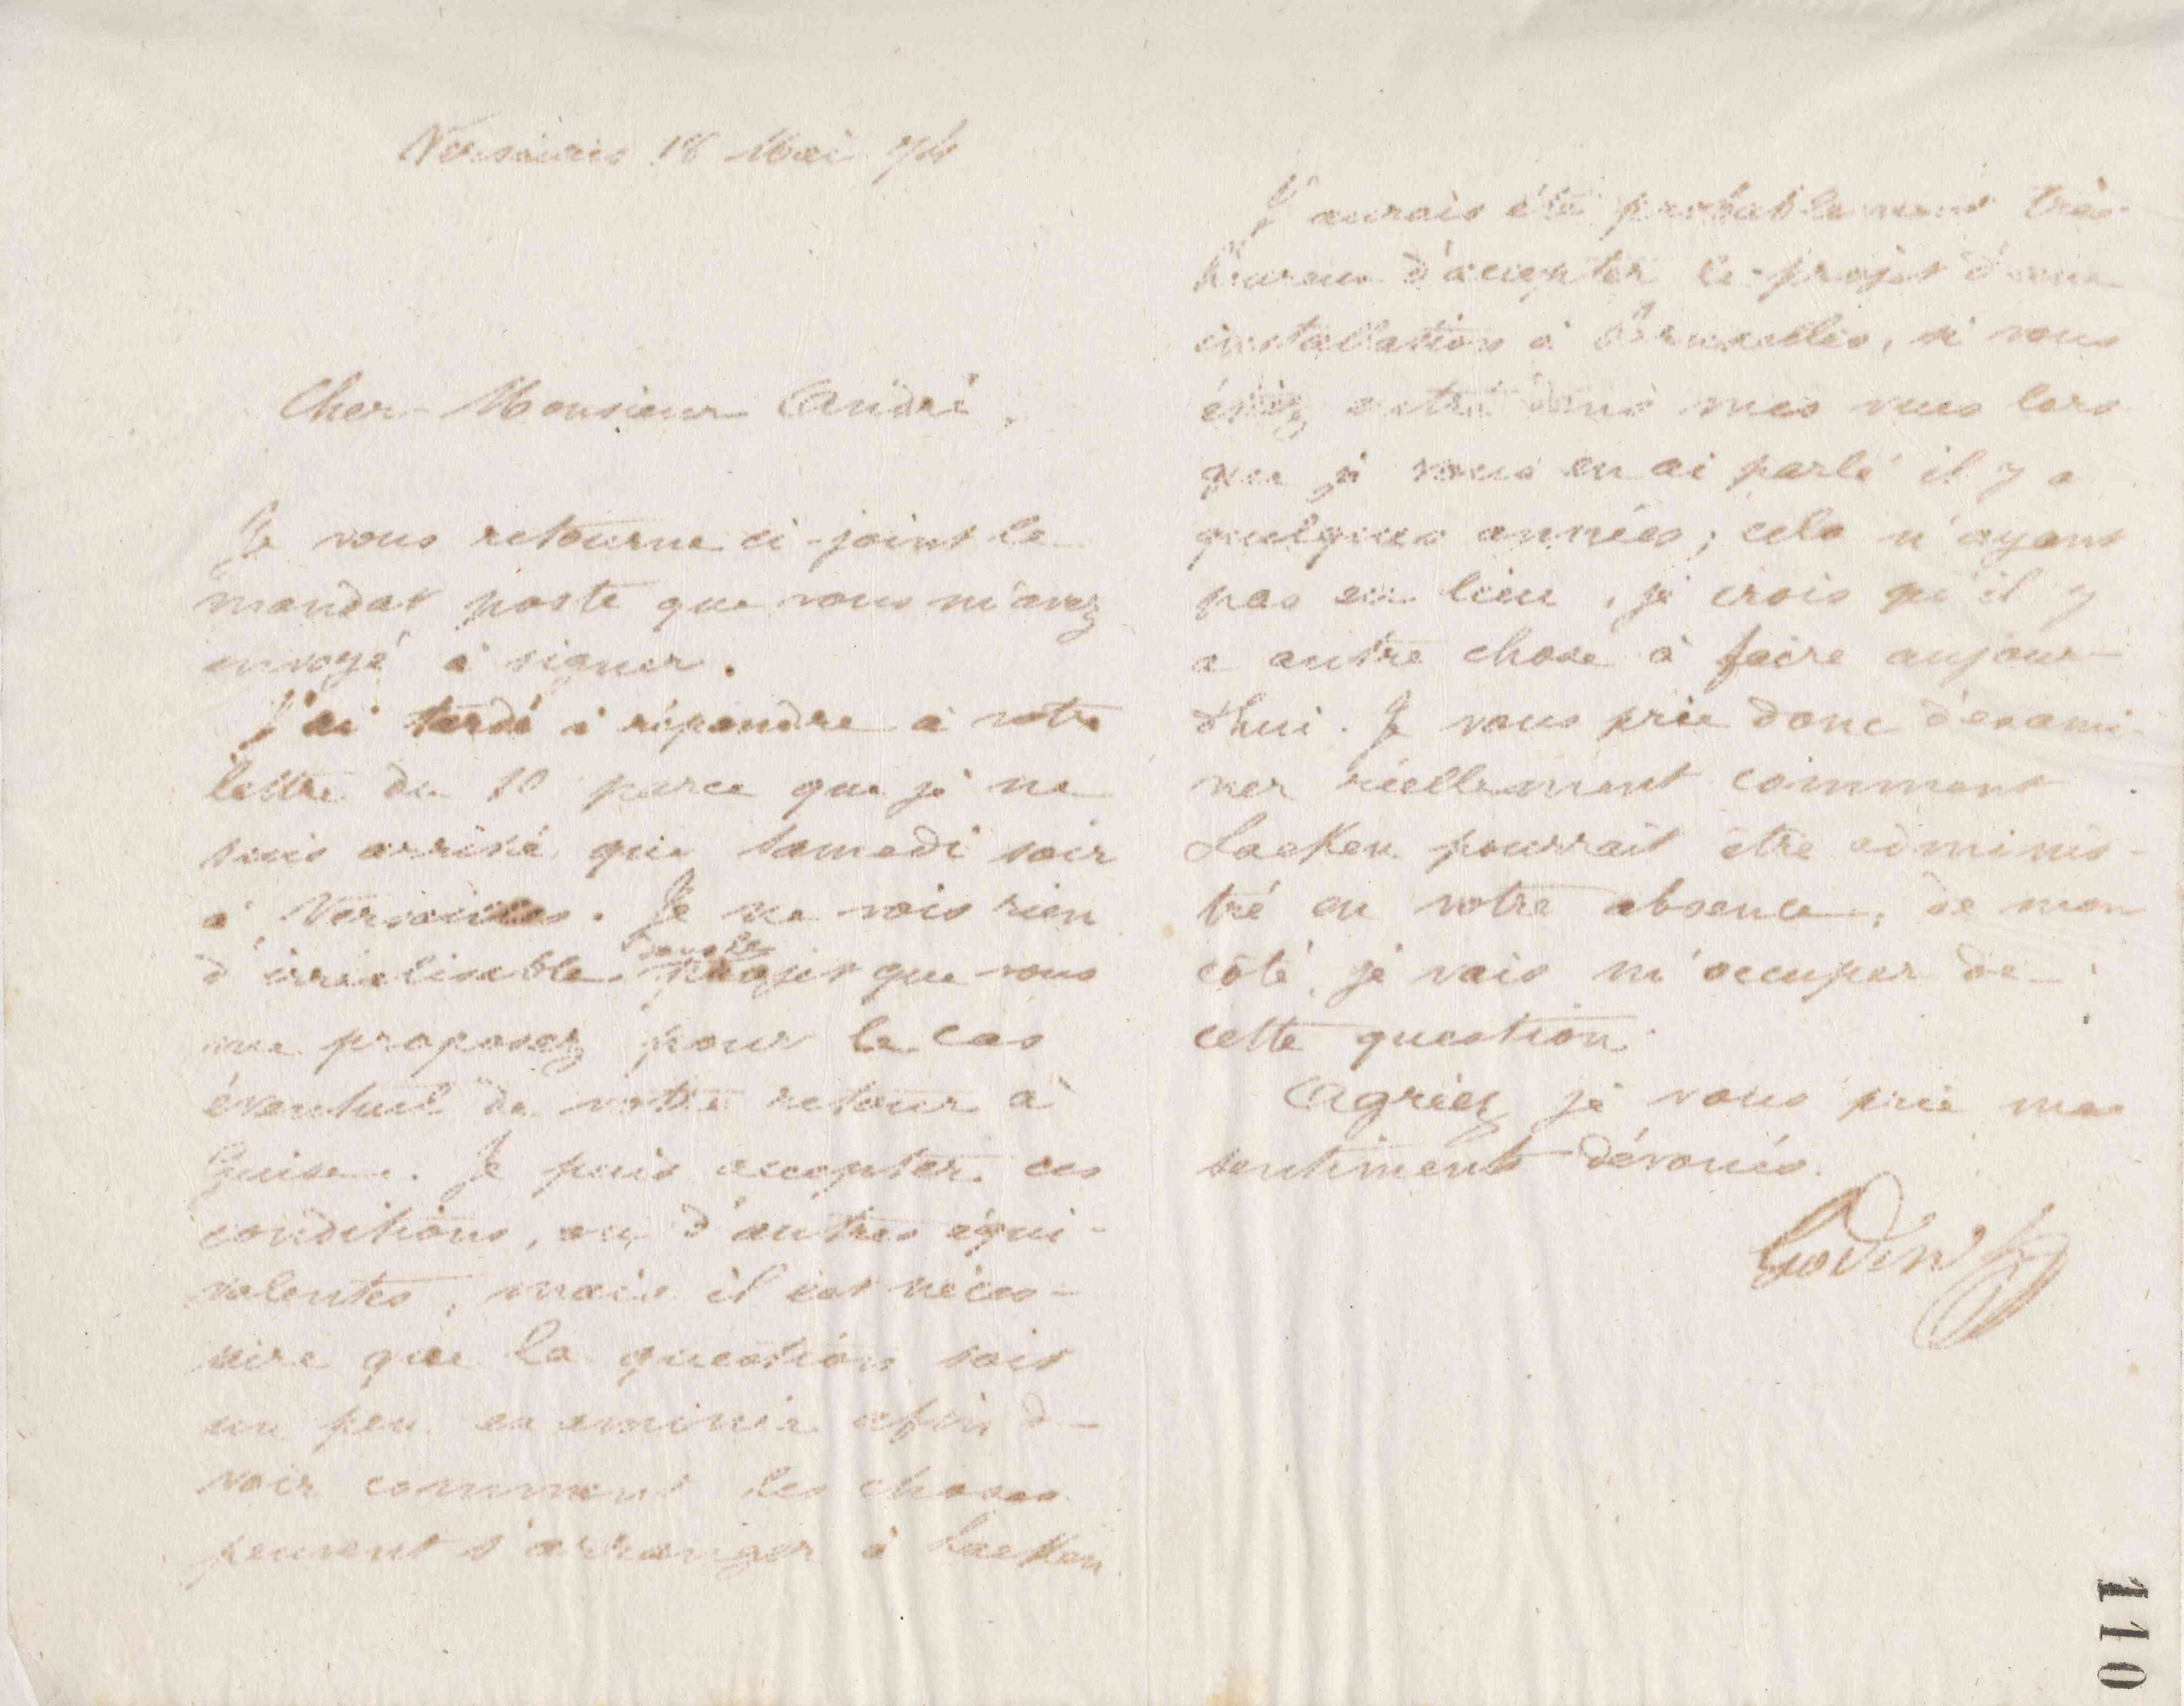 Versailles 18 Mai 74
Cher Monsieur André,
Je vous retourne ci-joint le
mandat poste que vous m'avez
envoyé à signer.
J'ai tardé à répondre à votre
lettre du 10 parce que je ne
suis arrivé que samedi soir
à Versailles. Je ne vois rien
d'irréalisable dans le projet que vous
me proposez pour le cas
éventuel de votre retour à
Guise. Je puis accepter ces
conditions, ou d'autres équi-
valentes, mais il est néces-
saire que la question soit
un peu examinée afin de
voir comment les choses
peuvent s'arranger à Laeken.
J'aurais été probablement très
heureux d'accepter le projet d'une
installation à Bruxelles, si vous
étiez entré dans mes vues lors
que je vous en ai parlé il y a
quelques années; cela n'ayant
pas eu lieu, je crois qu'il y
a autre chose à faire aujour-
d'hui. Je vous prie donc d'exami-
ner réellement comment
Laeken pourrait être adminis-
tré en votre absence, de mon
côté, je vais m'occuper de
cette question.
Agréez je vous prie mes
sentiments dévoués.
Godin
110